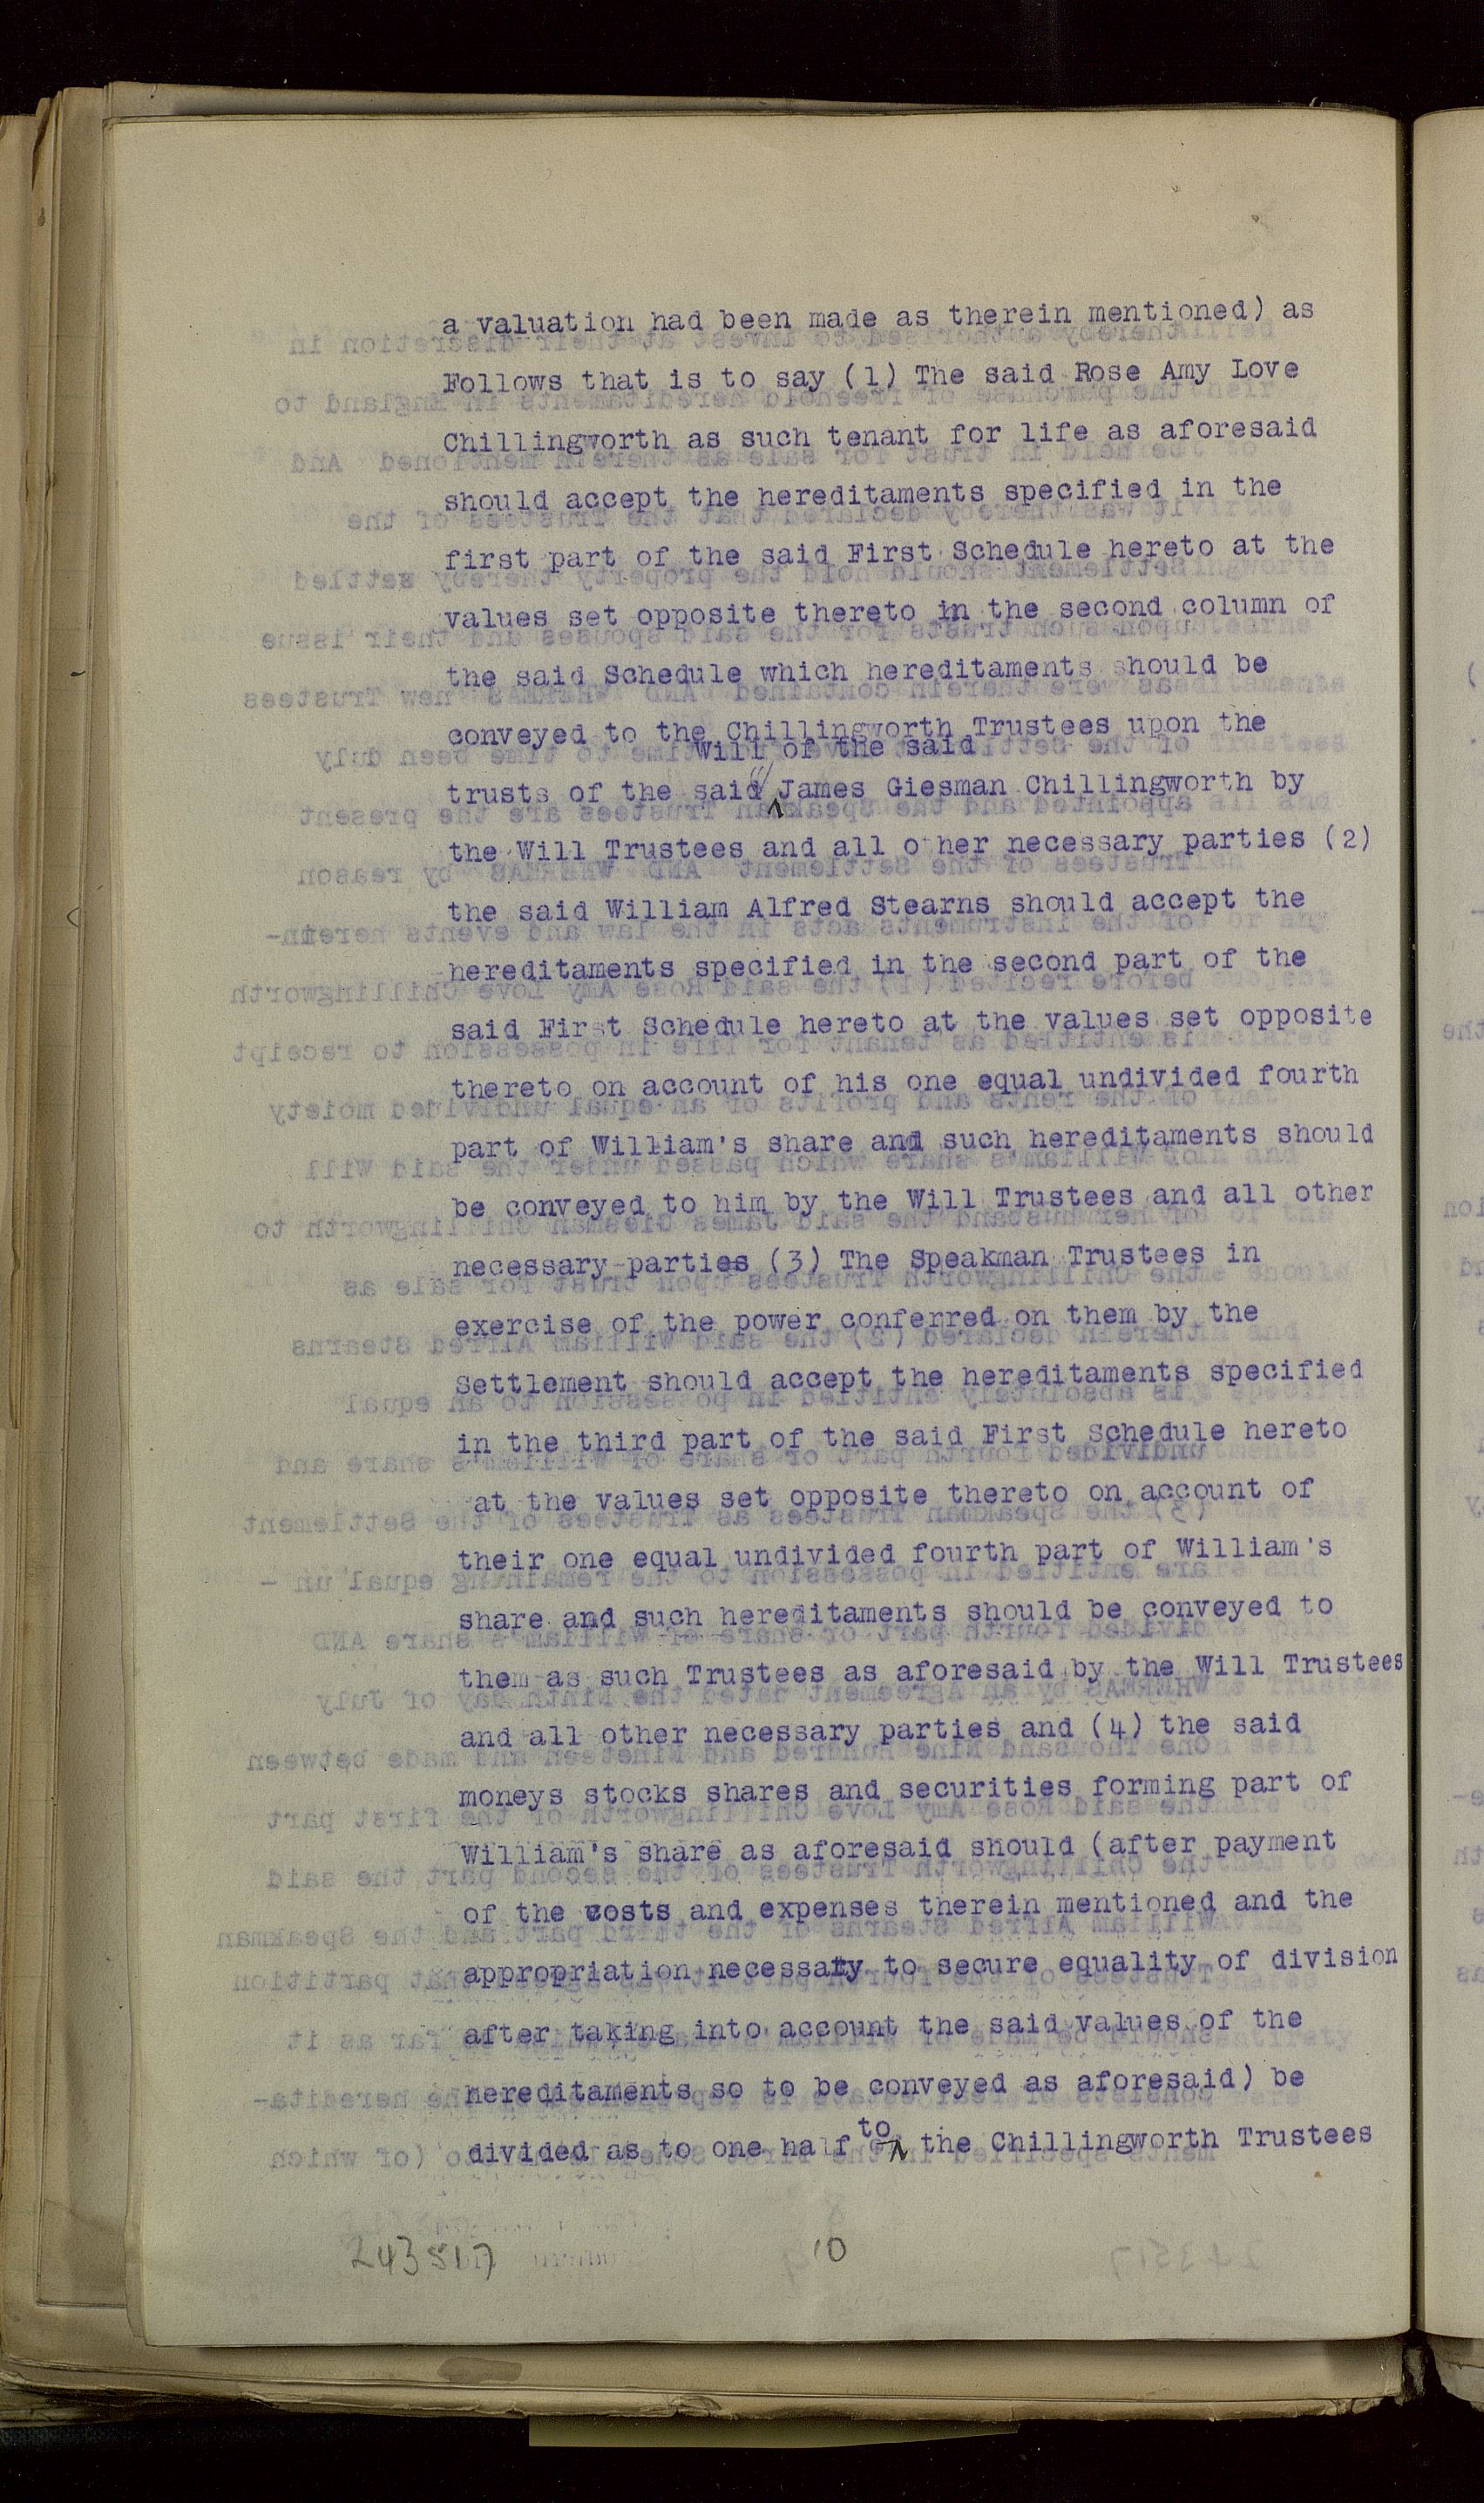 a valuation had been made as therein mentioned) as
Follows that is to say (1) The said Rose Amy Love
Chillingworth as such tenant for life as aforesaid
should accept the hereditaments specified in the
first part of the said First Schedule hereto at the
values set opposite thereto in the second column of
the said Schedule which hereditaments should be
conveyed to the Chillingworth Trustees upon the
Will of the said
trusts of the said James Giesman Chillingworth by
the Will Trustees and all other necessary parties (2)
the said William Alfred Stearns should accept the
hereditaments specified in the second part of the
said First Schedule hereto at the values set opposite
thereto on account of his one equal undivided fourth
part of William's share and such hereditaments should
be conveyed to him by the Will Trustees and all other
necessary parties (3) The Speakman Trustees in
exercise of the power conferred on them by the
Settlement should accept the hereditaments specified
in the third part of the said First Schedule hereto
at the values set opposite thereto on account of
their one equal undivided fourth part of William's
share and such hereditaments should be conveyed to
them as such Trustees as aforesaid by the Will Trustees
and all other necessary parties and (4) the said
moneys stocks shares and securities forming part of
William's share as aforesaid should (after payment
of the costs and expenses therein mentioned and the
appropriation necessary to secure equality of division
after taking into account the said values of the
hereditaments so to be conveyed as aforesaid) be
to
divided as to one half the Chillingworth Trustees
243517
10